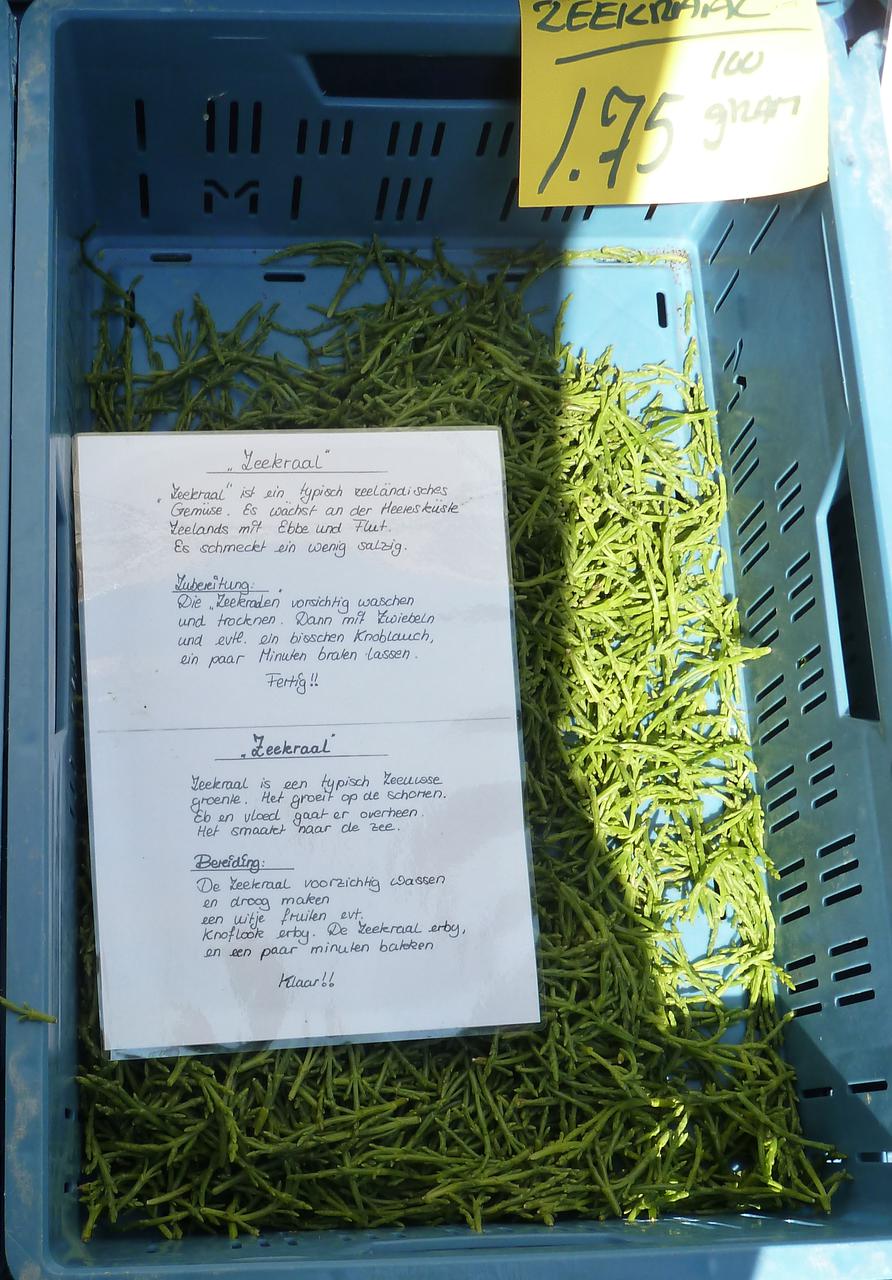 ZEEKRAAL
100
1.75 gram
„Zeekraal"
„Zeekraal" ist ein typisch zeeländisches
Gemüse. Es wächst an der Meeresküste
Zeelands mit Ebbe und Flut.
Es schmeckt ein wenig salzig.
Zubereitung:
Die „Zeekraden" vorsichtig waschen
und trocknen. Dann mit Zwiebeln
und evtl. ein bisschen Knoblauch,
ein paar Minuten braten lassen.
Fertig!!
„Zeekraal"
Zeekraal is een typisch Zeeuwse
groente. Het groeit op de schorren.
Eb en vloed gaat er overheen.
Het smaakt naar de zee.
Bereiding:
De Zeekraal voorzichtig wassen
en droog maken
een uitje fruiten evt.
Knoflook erby. De Zeekraal erby,
en een paar minuten bakken
Klaar!!